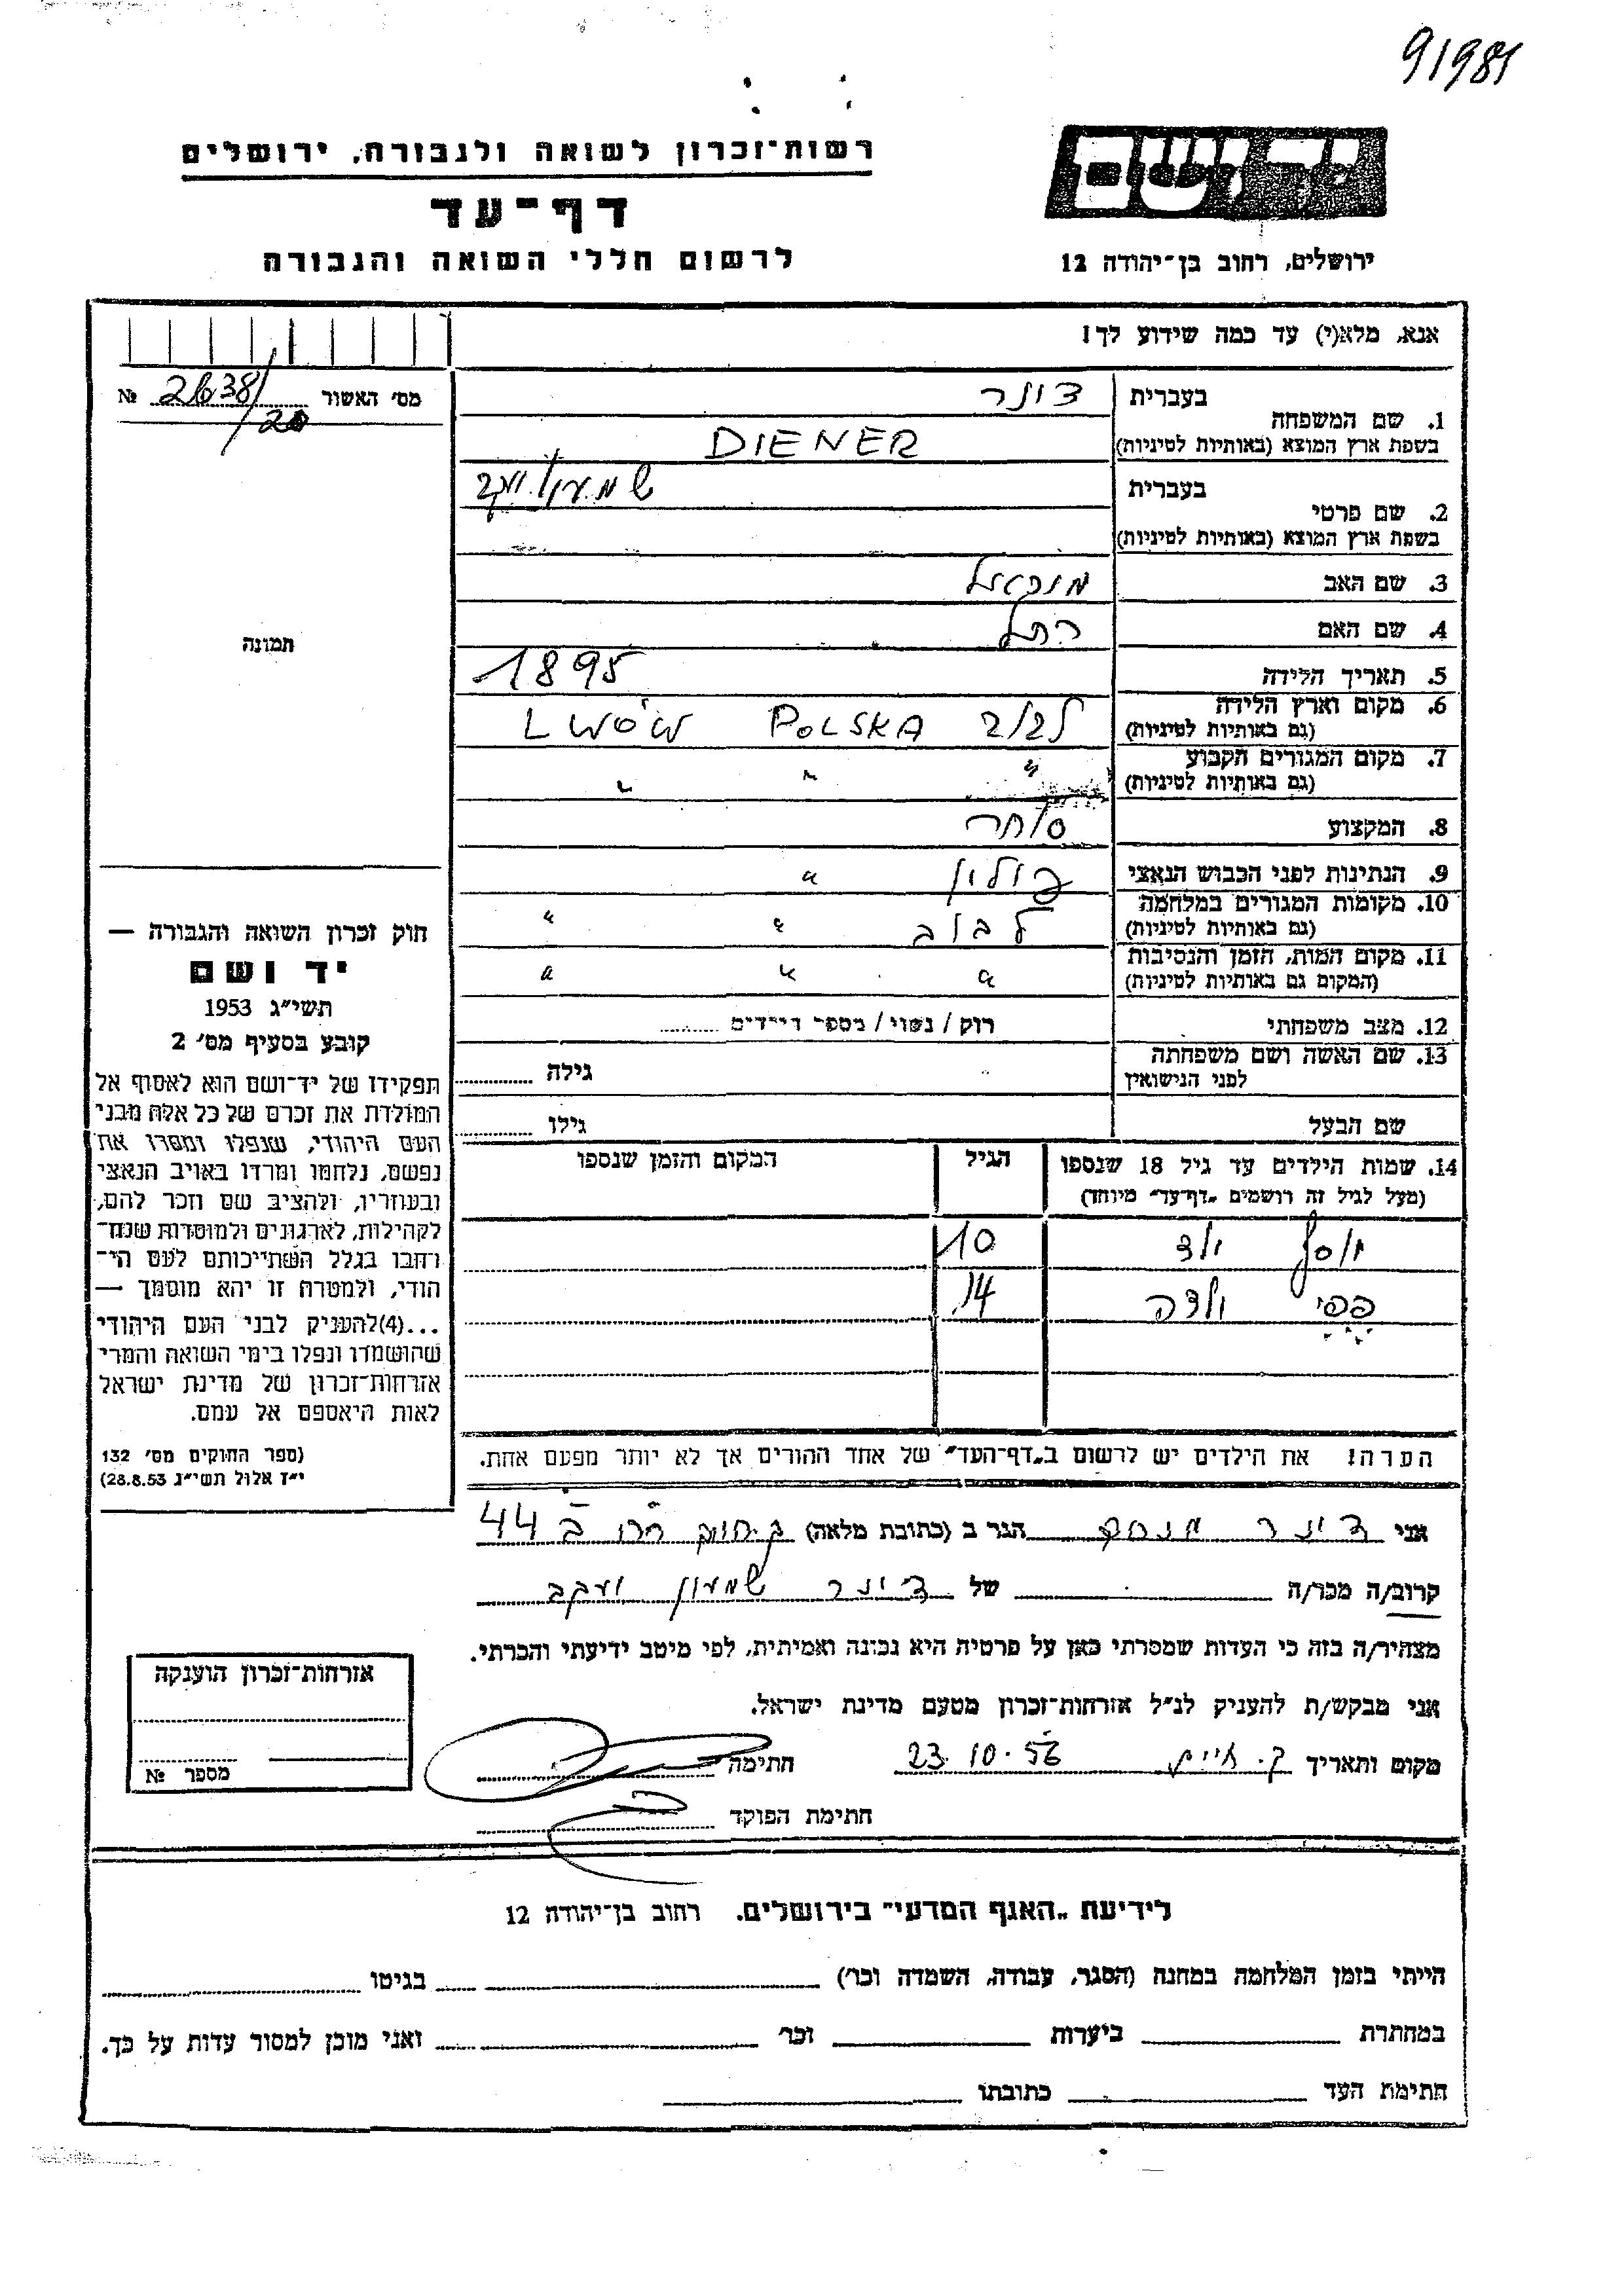 91981
יד ושם
רשות־זכרון לשואה ולגבורה, ירושלים
דף־עד
לרשום חללי השואה והגבורה
ירושלים, רחוב בן־יהודה 12
אנא, מלא(י) עד כמה שידוע לך!
מס׳ האשור 2638/20 №
תמונה
1. שם המשפחה
בעברית דינר
בשפת ארץ המוצא (באותיות לטיניות) DIENER
2. שם פרטי
בעברית שמעון יעקב
בשפת ארץ המוצא (באותיות לטיניות)
3. שם האב מיכאל
4. שם האם רחל
5. תאריך הלידה 1895
6. מקום וארץ הלידה לבוב POLSKA LWÓW
(גם באותיות לטיניות)
7. מקום המגורים הקבוע " " "
(גם באותיות לטיניות)
8. המקצוע סוחר
9. הנתינות לפני הכבוש הנאצי פולין "
10. מקומות המגורים במלחמה לבוב " "
(גם באותיות לטיניות)
11. מקום המות, הזמן והנסיבות " " "
(המקום גם באותיות לטיניות)
12. מצב משפחתי רוק / נשוי / מספר הילדים
13. שם האשה ושם משפחתה גילה
לפני הנישואין
שם הבעל גילו
14. שמות הילדים עד גיל 18 שנספו הגיל המקום והזמן שנספו
(מעל לגיל זה רושמים „דף־עד״ מיוחד)
יוסף ילד 10
פפי ילדה 14
הערה! את הילדים יש לרשום ב„דף־העד״ של אחד ההורים אך לא יותר מפעם אחת.
חוק זכרון השואה והגבורה —
יד ושם
תשי״ג 1953
קובע בסעיף מס׳ 2
תפקידו של יד־ושם הוא לאסוף אל
המולדת את זכרם של כל אלה מבני
העם היהודי, שנפלו ומסרו את
נפשם, נלחמו ומרדו באויב הנאצי
ובעוזריו, ולהציב שם וזכר להם,
לקהילות, לארגונים ולמוסדות שנח־
רבו בגלל השתייכותם לעם הי־
הודי, ולמטרה זו יהא מוסמך —
...(4)להעניק לבני העם היהודי
שהושמדו ונפלו בימי השואה והמרי
אזרחות־זכרון של מדינת ישראל
לאות היאספם אל עמם.
(ספר החוקים מס׳ 132
י״ז אלול תשי״ג 28.8.53)
אני דינר הגר ב (כתובת מלאה) ק. 44
קרוב/ה מכר/ה של דינר שמעון יעקב
מצהיר/ה בזה כי העדות שמסרתי כאן על פרטיה היא נכונה ואמיתית, לפי מיטב ידיעתי והכרתי.
אני מבקש/ת להעניק לנ״ל אזרחות־זכרון מטעם מדינת ישראל.
מקום ותאריך ק. חיים 23.10.56 חתימה
חתימת הפוקד
אזרחות־זכרון הוענקה
מספר №
לידיעת „האגף המדעי״ בירושלים. רחוב בן־יהודה 12
הייתי בזמן המלחמה במחנה (הסגר, עבודה, השמדה וכו׳) בגיטו
במחתרת ביערות וכו׳ ואני מוכן למסור עדות על כך.
חתימת העד כתובתו